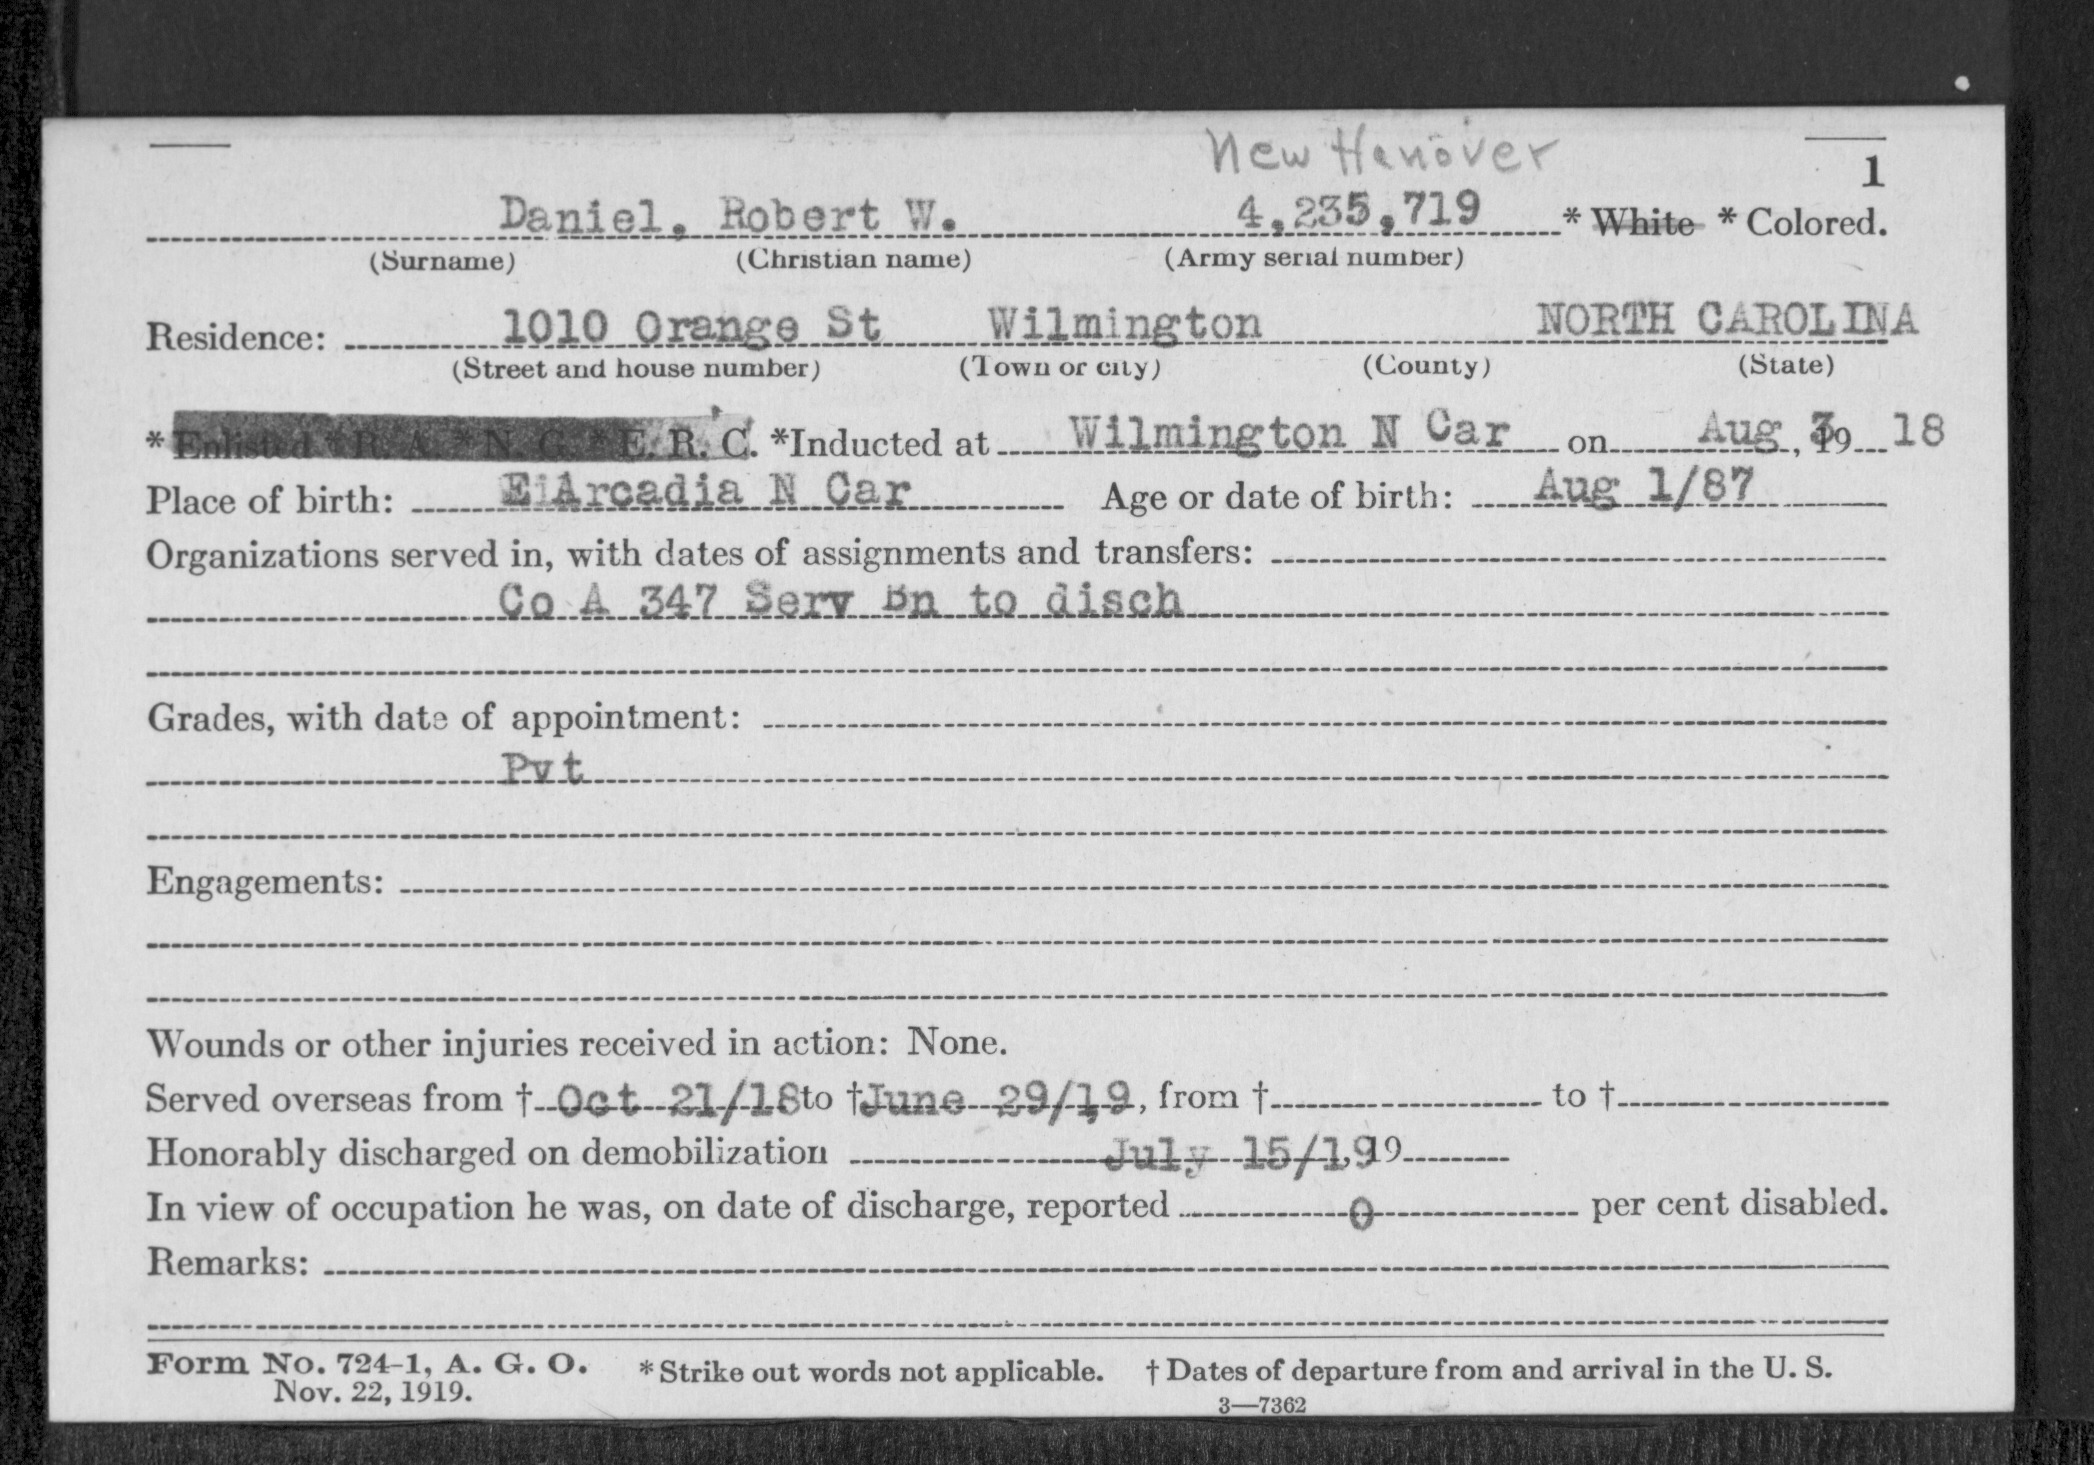 New Hanover
1
Daniel, Robert W. 4,235,719 * White * Colored.
(Surname) (Christian name) (Army serial number)
Residence: 1010 Orange St Wilmington NORTH CAROLINA
(Street and house number) (Town or city) (County) (State)
* Enlisted * R. A. * N. G. * E. R. C. *Inducted at Wilmington N Car on Aug 3, 19 18
Place of birth: Arcadia N Car Age or date of birth: Aug 1/87
Organizations served in, with dates of assignments and transfers:
Co A 347 Serv Bn to disch
Grades, with date of appointment:
Pvt
Engagements:
Wounds or other injuries received in action: None.
Served overseas from † Oct 21/18 to † June 29/19, from † to †
Honorably discharged on demobilization July 15/19, 19
In view of occupation he was, on date of discharge, reported 0 per cent disabled.
Remarks:
Form No. 724-1, A. G. O. * Strike out words not applicable. † Dates of departure from and arrival in the U. S.
Nov. 22, 1919.
3—7362